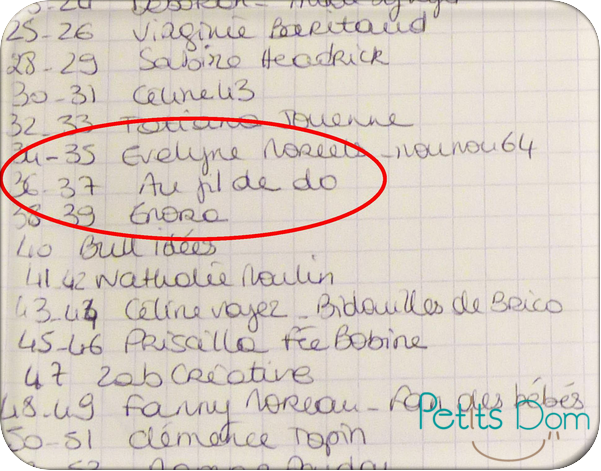 25-26 Virginie Berritaud
28-29 Sabine Headrick
30-31 Celine43
32-33 Tatiana Touenne
34-35 Evelyne - nounou64
36-37 Au fil de do
38 39 Enora
40 Bull idées
41 42 Nathalie Moulin
43-44 Céline voyez - Bidouilles de Brico
45-46 Priscilla Fée Bobine
47 Zab Créative
48-49 Fanny Moreau - Fan des bébés
50-51 Clémence Topin
Petits Dom